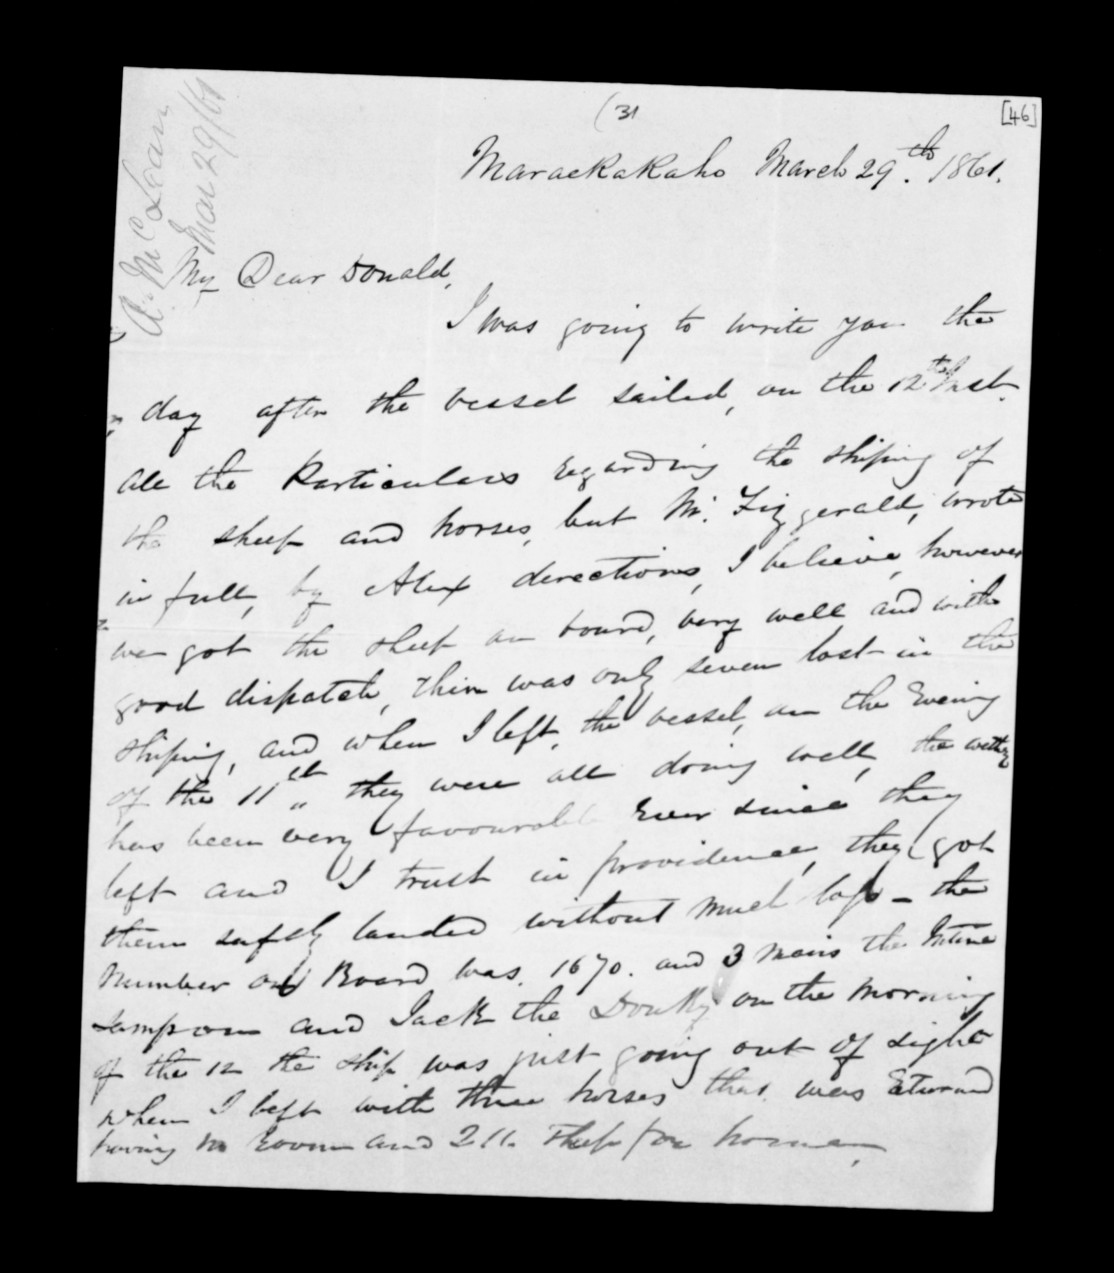 (31
[46]
A. McLean
Mar 29/61
Marackakaho March 29th. 1861.
My Dear Donald,
I was going to write you the
day after the vessel sailed, on the 12th Inst.
All the Particulars regarding the shiping of
the sheep and horses, but Mr. Fizgerald, wrote
in full, by Alex directions, I believe, however
we got the sheep on board, very well and with
good dispatch, their was only seven lost in the
shiping, and when I left, the vessel, on the Evening
of the 11th they were all doing well, the
has been very favourable Ever since they
left and I trust in providence, they got
them safely landed without much loss - the
Number on Board was. 1670. and 3 mairs the
Sampson and Jack the Donky on the morning
of the 12 the ship was just going out of sight
when I left with three horses that was
having no Room and 211 sheep for home,